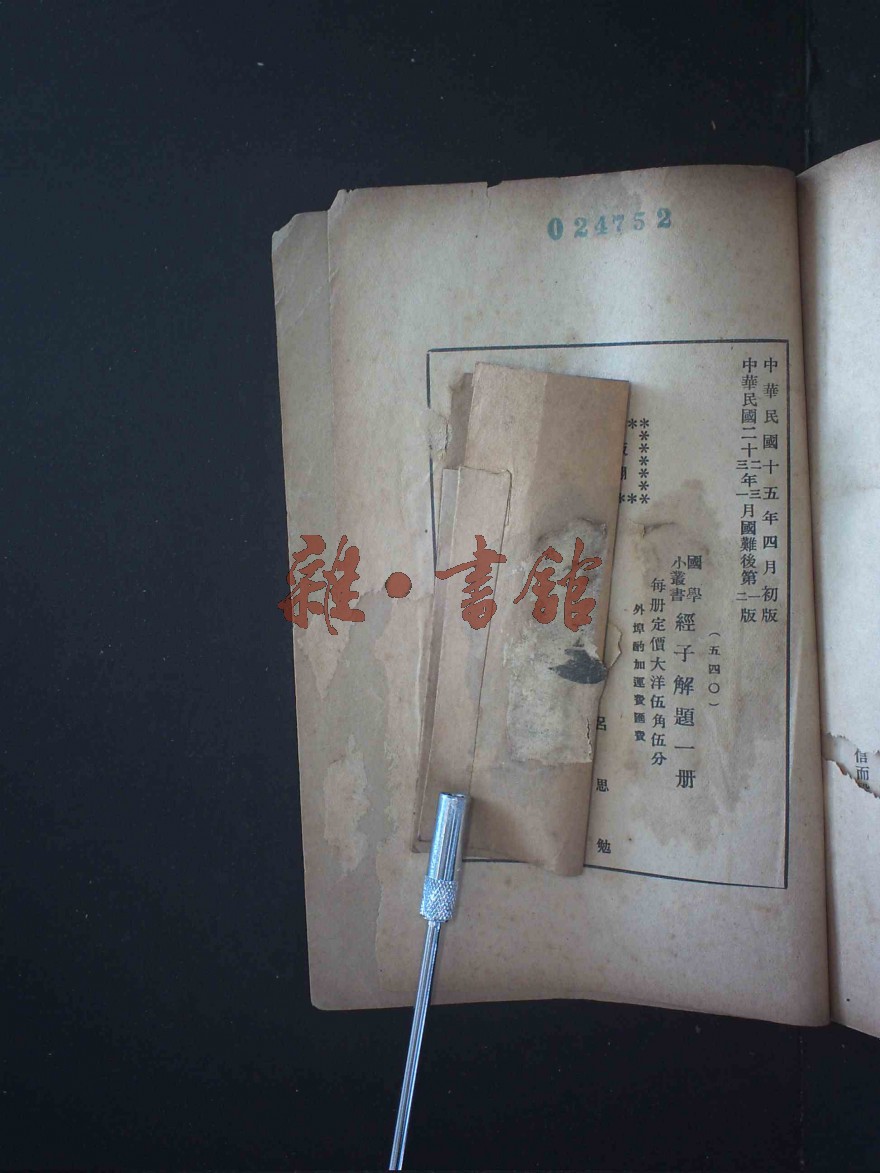 024752
中華民國十五年四月初版
中華民國二十二年
三年一月國難後第一
二版
(五四〇)
國學
小叢書
經子解題一册
每册定價大洋伍角伍分
外埠酌加運費匯費
呂思勉
信而
雜·書館